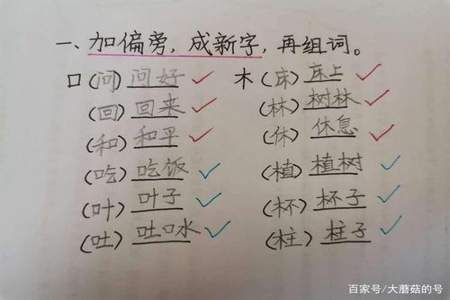 一、加偏旁，成新字，再组词。
口(问) 问好 ✓ 木(床) 床上 ✓
(回) 回来 ✓ (林) 树林 ✓
(和) 和平 ✓ (休) 休息 ✓
(吃) 吃饭 ✓ (植) 植树 ✓
(叶) 叶子 ✓ (杯) 杯子 ✓
(吐) 吐口水 ✓ (柱) 柱子 ✓
百家号/大蘑菇的号